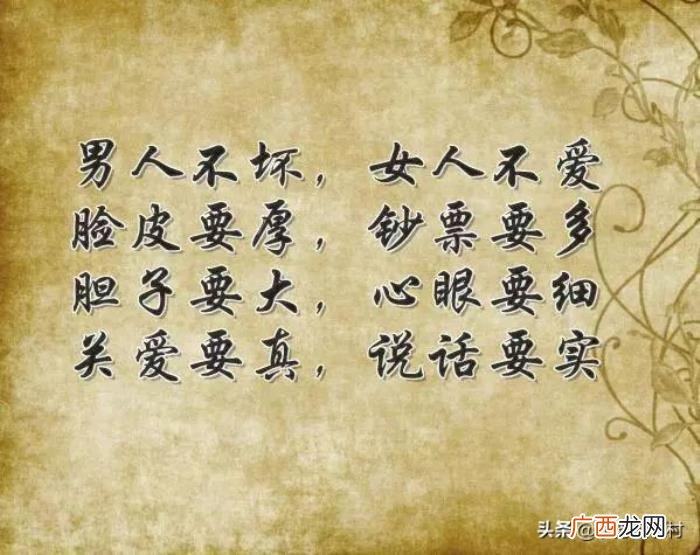 男人不坏，女人不爱
脸皮要厚，钞票要多
胆子要大，心眼要细
关爱要真，说话要实
头条 @
广西龙网
村